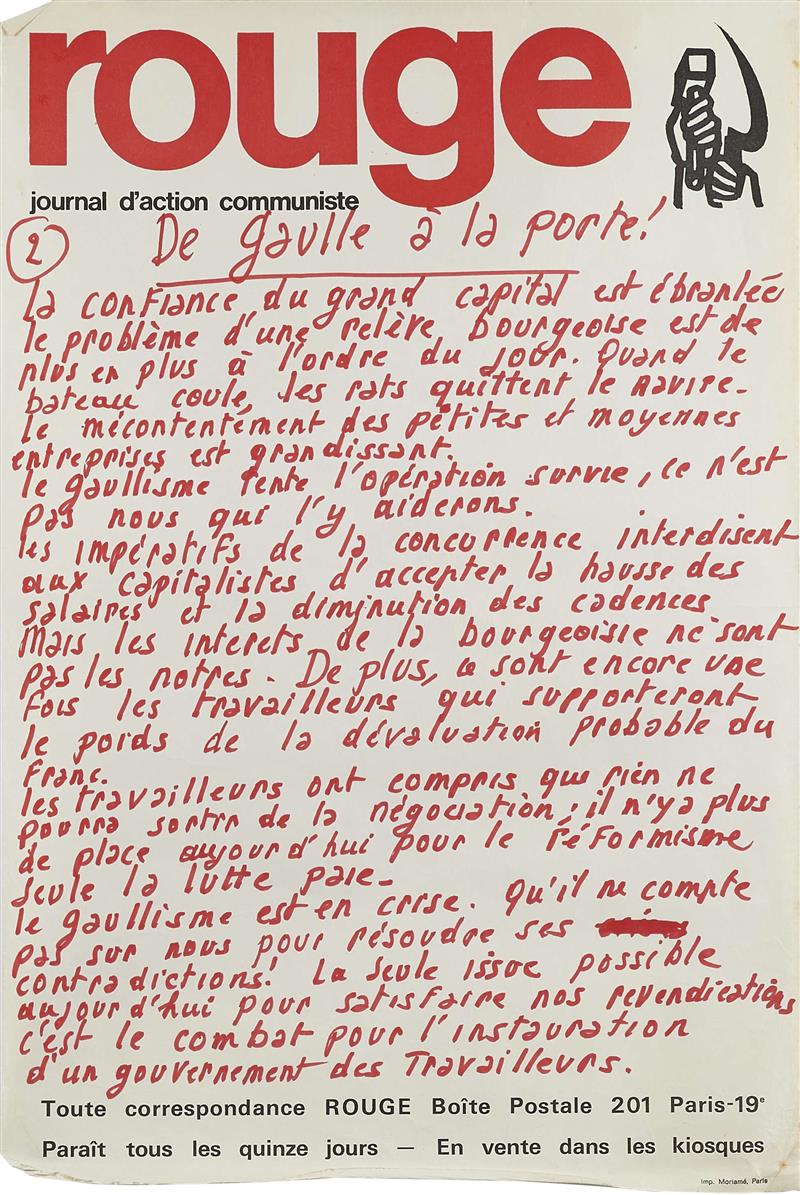 rouge
journal d'action communiste
2
De Gaulle à la porte!
la confiance du grand capital est ébranlée
le problème d'une relève bourgeoise est de
plus en plus à l'ordre du jour. Quand le
bateau coule, les rats quittent le navire-
le mécontentement des petites et moyennes
entreprises est grandissant.
le gaullisme tente l'opération survie, ce n'est
pas nous qui l'y aiderons.
les impératifs de la concurrence interdisent
aux capitalistes d'accepter la hausse des
salaires et la diminution des cadences
Mais les interets de la bourgeoisie ne sont
pas les notres. De plus, ce sont encore une
fois les travailleurs qui supporteront
le poids de la dévaluation probable du
franc.
les travailleurs ont compris que rien ne
pourra sortir de la négociation; il n'y a plus
de place aujourd'hui pour le réformisme
seule la lutte paie-
le gaullisme est en crise. Qu'il ne compte
pas sur nous pour résoudre ses
contradictions! La seule issue possible
aujourd'hui pour satisfaire nos revendications
c'est le combat pour l'instauration
d'un gouvernement des Travailleurs.
Toute correspondance ROUGE Boîte Postale 201 Paris-19e
Paraît tous les quinze jours — En vente dans les kiosques
Imp. Moriamé, Paris